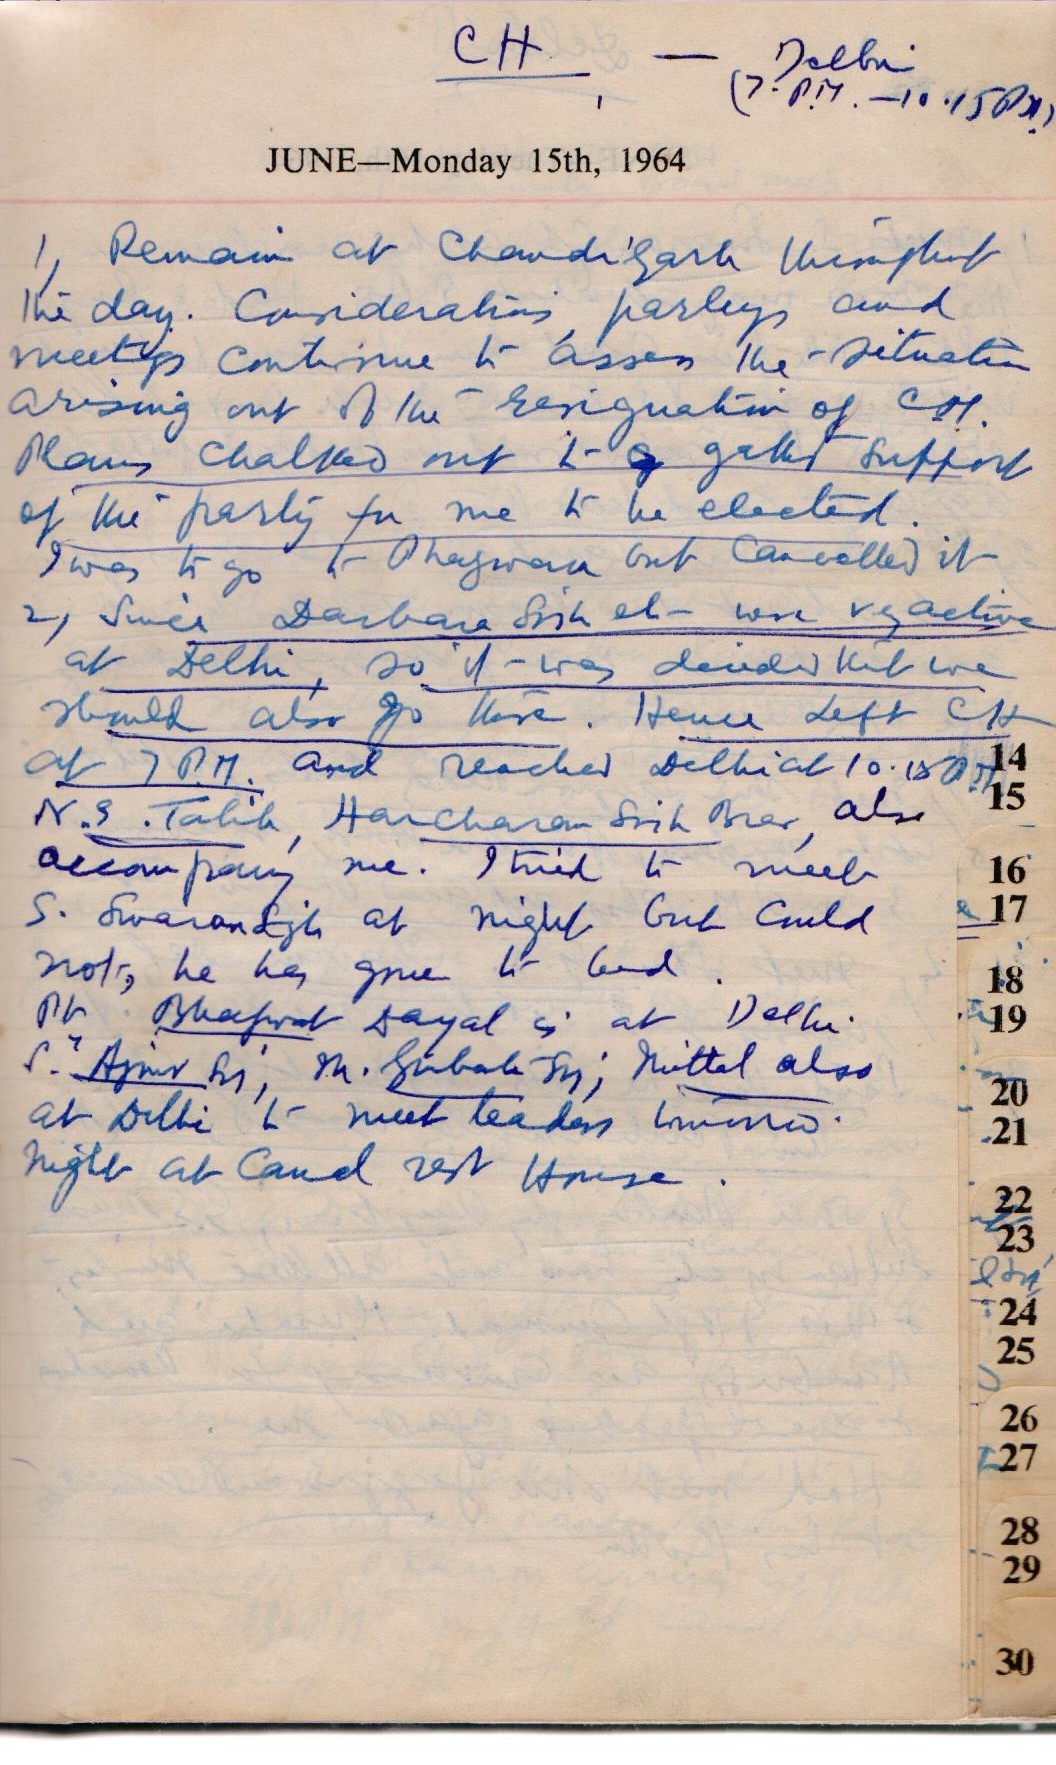 CH. — Delhi
(7. P.M. — 10.15 P.M.)
JUNE—Monday 15th, 1964
1, Remain at Chandigarh throughout
the day. Considerations, parleys and
meetgs continue to assess the situation
arising out of the resignation of CM.
Plans chalked out to gather support
of the party for me to be elected.
I was to go to Phagwara but Cancelled it
2, Since Darbara Singh etc were vy active
at Delhi, so it was decided that we
should also go there. Hence left CH
at 7 P.M. and reached Delhi at 10.15 P.M.
N.S. Talib, Harcharan Singh Brar, also
accompany me. I tried to meet
S. Swaran Singh at night but could
not, he has gone to bed.
Pt. Bhagwat Dayal is at Delhi.
S. Ajmer Sj, M. Gurbak Sj; Mittal also
at Delhi to meet leaders tomorrow.
Night at Canal rest House.
14
15
16
17
18
19
20
21
22
23
24
25
26
27
28
29
30